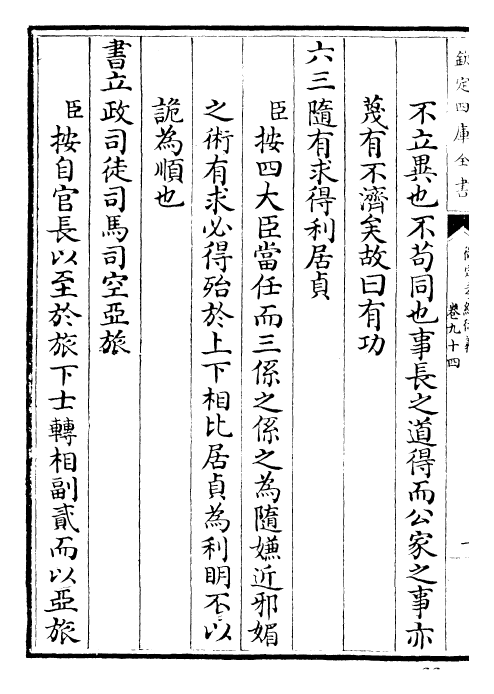 欽定四庫全書
卷九十四
不立異也不苟同也事長之道得而公家之事亦
蔑有不濟矣故曰有功
六三隨有求得利居貞
臣按四大臣當任而三係之係之為隨嫌近邪媚
之術有求必得殆於上下相比居貞為利明不以
詭為順也
書立政司徒司馬司空亞旅
臣按自官長以至於旅下士轉相副貳而以亞旅